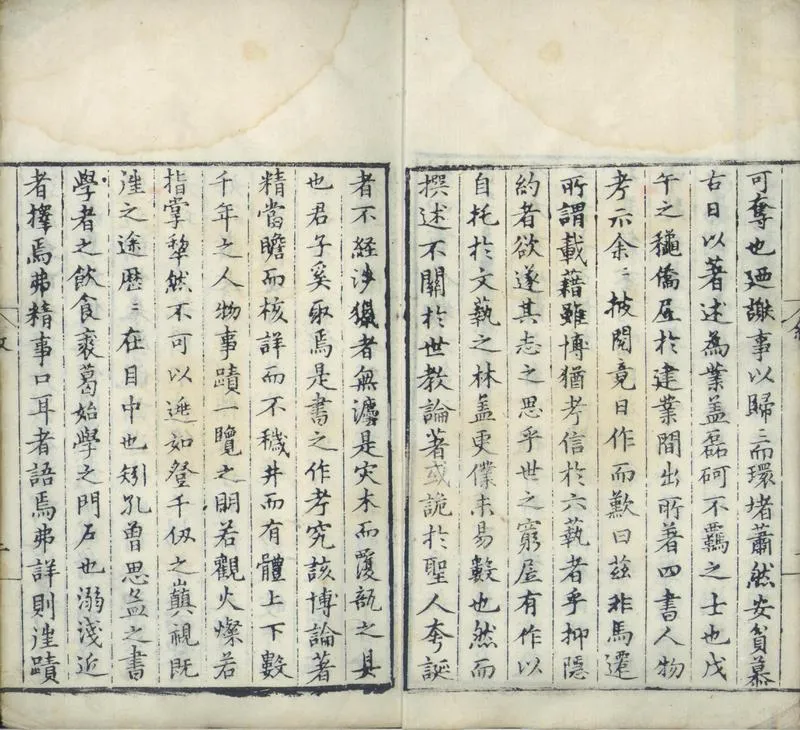 可奪也廼謝事以歸〻而環堵蕭然安貧慕
古日以著述為業盖磊砢不羈之士也戊
午之龝僑居於建業間出所著四書人物
考示余〻披閱竟日作而歎曰茲非馬遷
所謂載藉雖博猶考信於六藝者乎抑隱
約者欲遂其志之思乎世之窮居有作以
自托於文藝之林盖更僕未易數也然而
撰述不關於世教論著或詭於聖人夸誕
者不經涉獵者無是灾木而覆瓿之具
也君子奚取焉是書之作考究該博論著
精當瞻而核詳而不穢井而有體上下數
千年之人物事蹟一覽之眀若觀火燦若
指掌犂然不可以遁如登千仞之巔視既
徃之途歷〻在目中也矧孔曾思孟之書
學者之飲食裘葛始學之門戶也溺淺近
者擇焉弗精事口耳者語焉弗詳則徃蹟